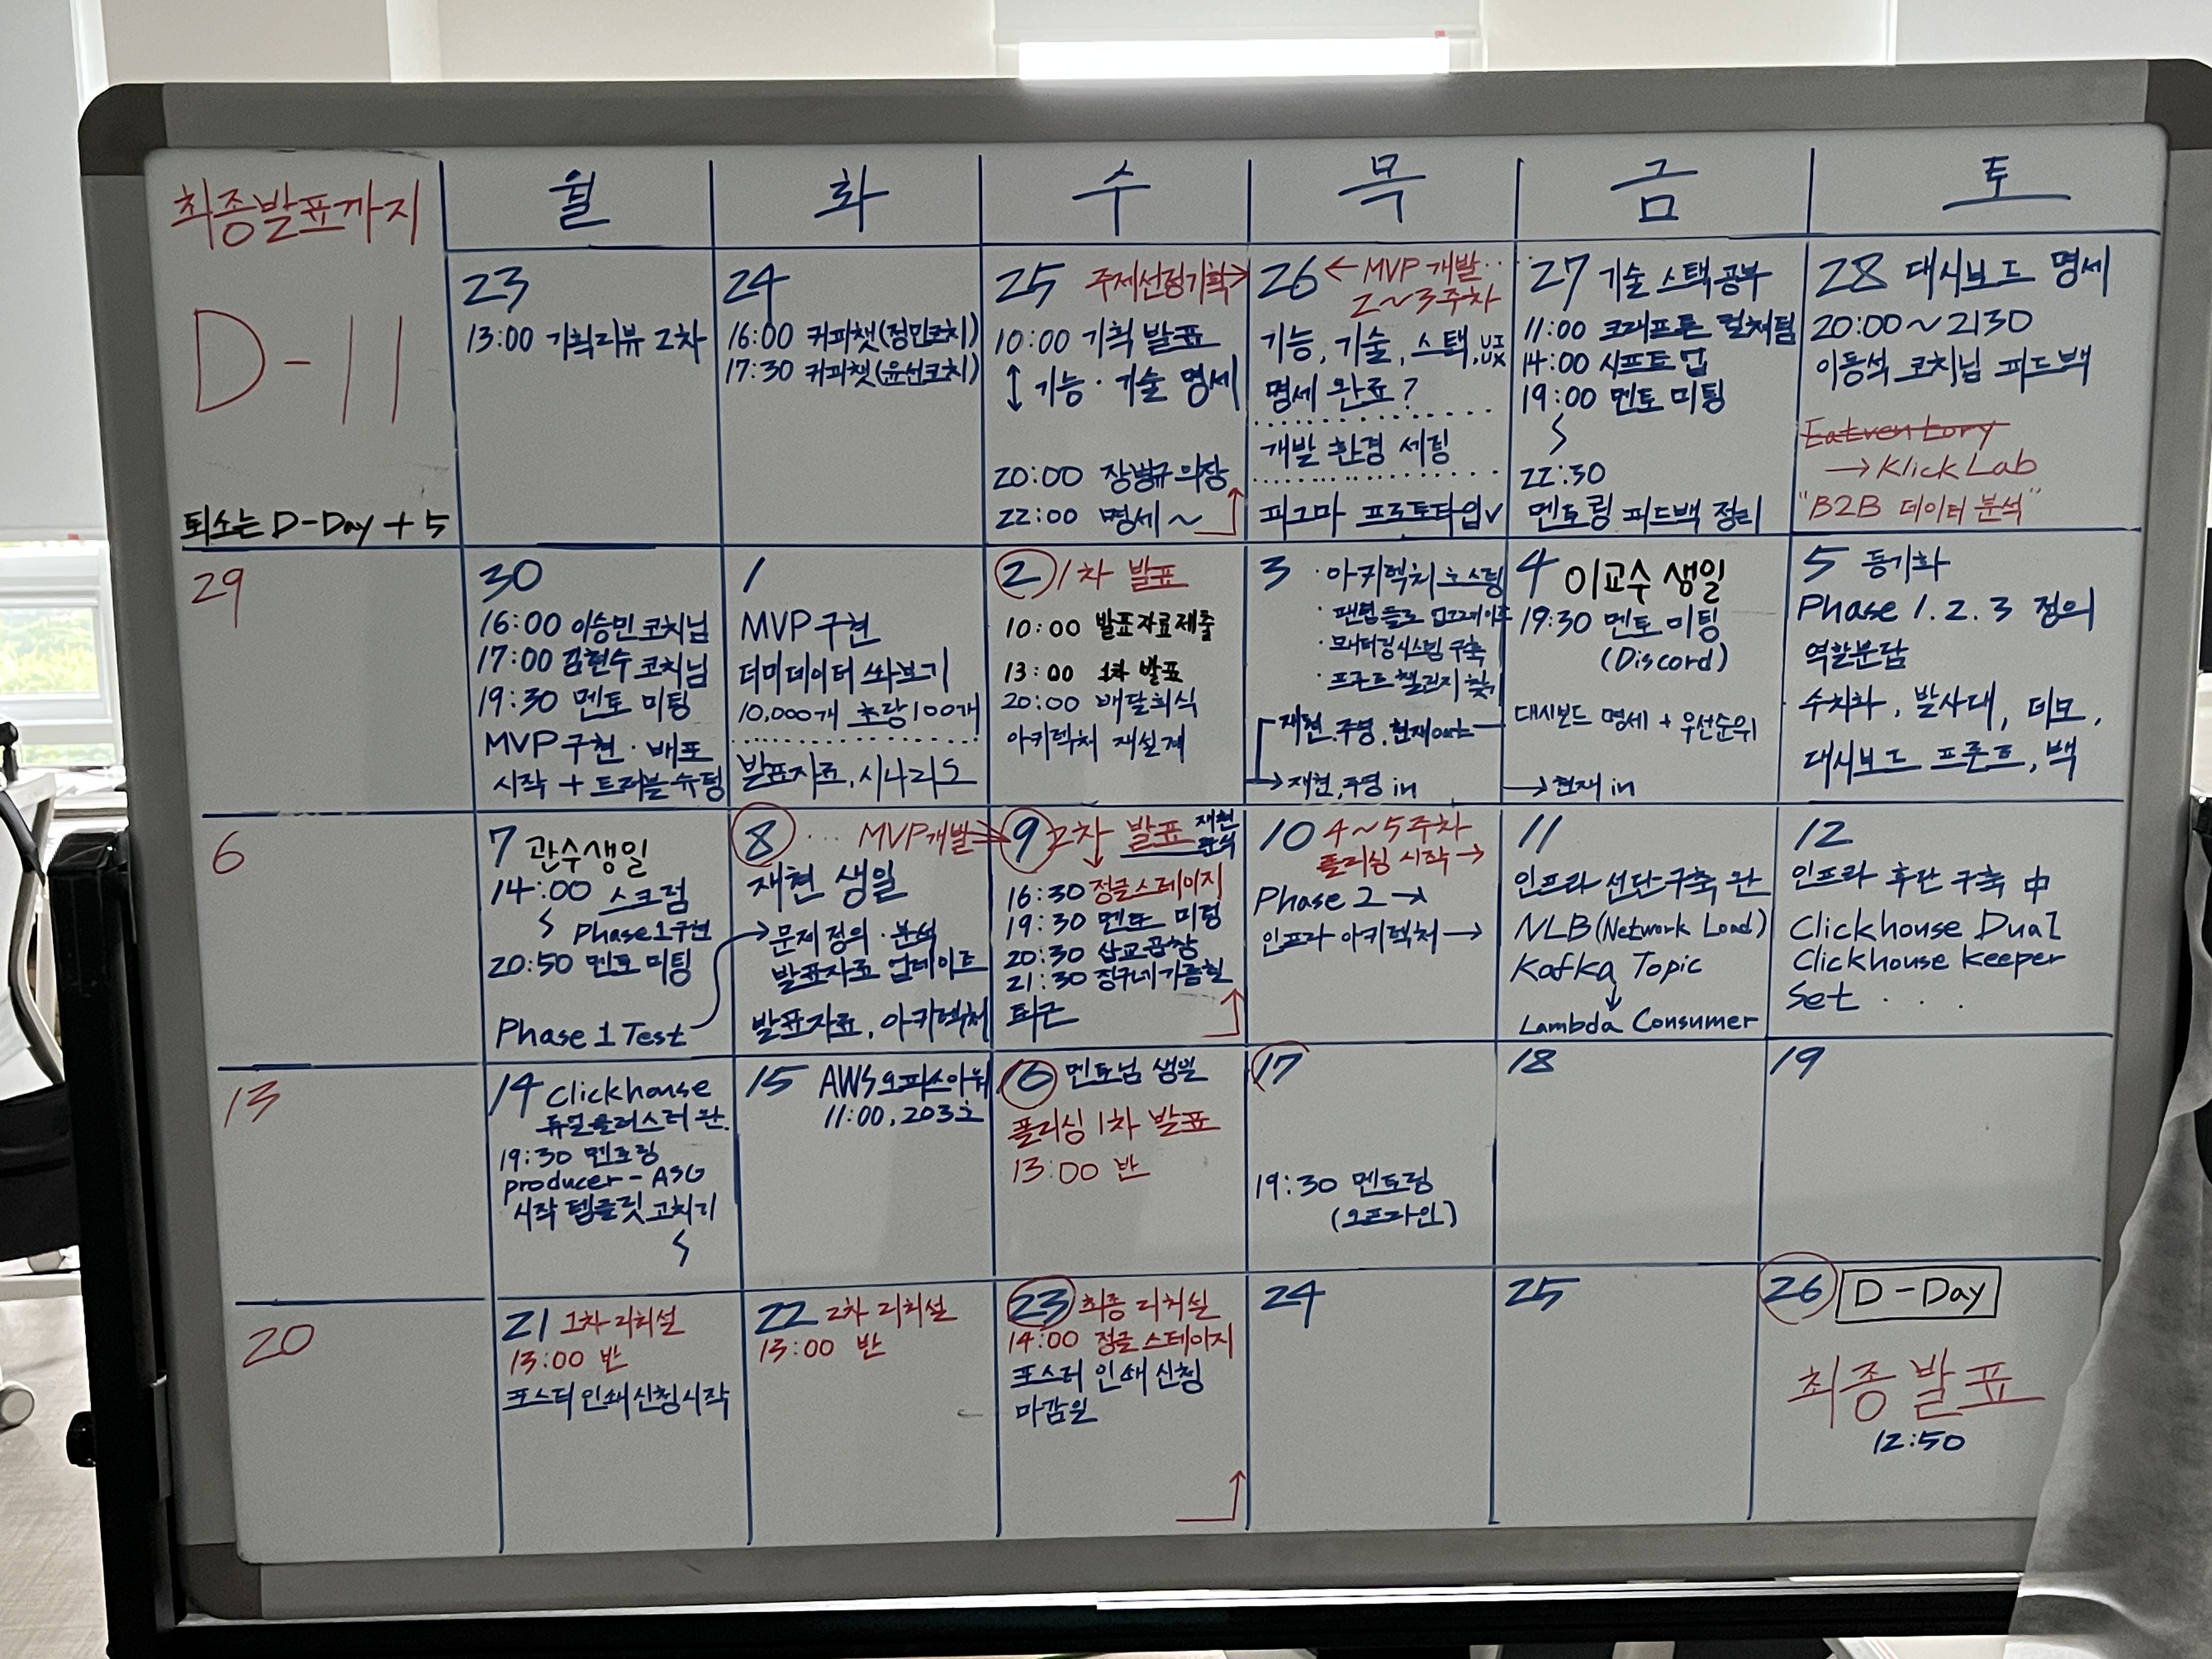 최종발표까지
D-11
퇴소는 D-Day + 5
월
화
수
목
금
토
23
13:00 기획리뷰 2차
24
16:00 커피챗(정민코치)
17:30 커피챗(윤선코치)
25 주제선정기획→
10:00 기획 발표
↕ 기능·기술 명세
20:00 장병규 의장
22:00 명세 ~
26 ← MVP 개발...
2~3주차
기능, 기술, 스택, UI UX
명세 완료?
개발 환경 세팅
피그마 프로토타입✓
27 기술 스택 공부
11:00 크래프톤 컬처팀
14:00 시프트업
19:00 멘토 미팅
22:30
멘토링 피드백 정리
28 대시보드 명세
20:00~2130
이동석 코치님 피드백
Eatventory
→ Klick Lab
"B2B 데이터 분석"
29
30
16:00 이승민 코치님
17:00 김현수 코치님
19:30 멘토 미팅
MVP 구현·배포
시작 + 트러블슈팅
1
MVP 구현
더미데이터 쏴보기
10,000개 초당 100개
발표자료, 시나리오
2 1차 발표
10:00 발표자료제출
13:00 1차 발표
20:00 배달회식
아키텍처 재설계
3 ·아키텍처
·모니터링시스템 구축
·프론트 챌린지 찾기
재현, 주명, 현재out
→재현, 주명 in
4 이교수 생일
19:30 멘토 미팅
(Discord)
대시보드 명세 + 우선순위
→현재 in
5 동기화
Phase 1. 2. 3 정의
역할분담
수치화, 발사대, 데모,
대시보드 프론트, 백
6
7 관수생일
14:00 스크럼
Phase 1 구현
20:50 멘토 미팅
Phase 1 Test
8 ... MVP개발→
재현 생일
→문제 정의·분석
발표자료 업데이트
발표자료, 아키텍처
9 2차 발표 재현
16:30 정글스테이지
19:30 멘토 미팅
20:30 삼교곱창
21:30 징구네가름힐
퇴근
10 4~5주차
폴리싱 시작 →
Phase 2 →
인프라 아키텍처 →
11
인프라 선단구축 완
NLB(Network Load)
Kafka Topic
↓
Lambda Consumer
12
인프라 후단 구축 中
Clickhouse Dual
Clickhouse keeper
Set . . .
13
14 Clickhouse
듀얼클러스터 완.
19:30 멘토링
producer - ASG
시작 템플릿 고치기
15 AWS오피스아워
11:00, 203호
16 멘토님 생일
폴리싱 1차 발표
13:00 반
17
19:30 멘토링
(오프라인)
18
19
20
21 1차 리허설
13:00 반
포스터 인쇄 신청시작
22 2차 리허설
13:00 반
23 최종 리허설
14:00 정글 스테이지
포스터 인쇄 신청
마감일
24
25
26 D-Day
최종 발표
12:50